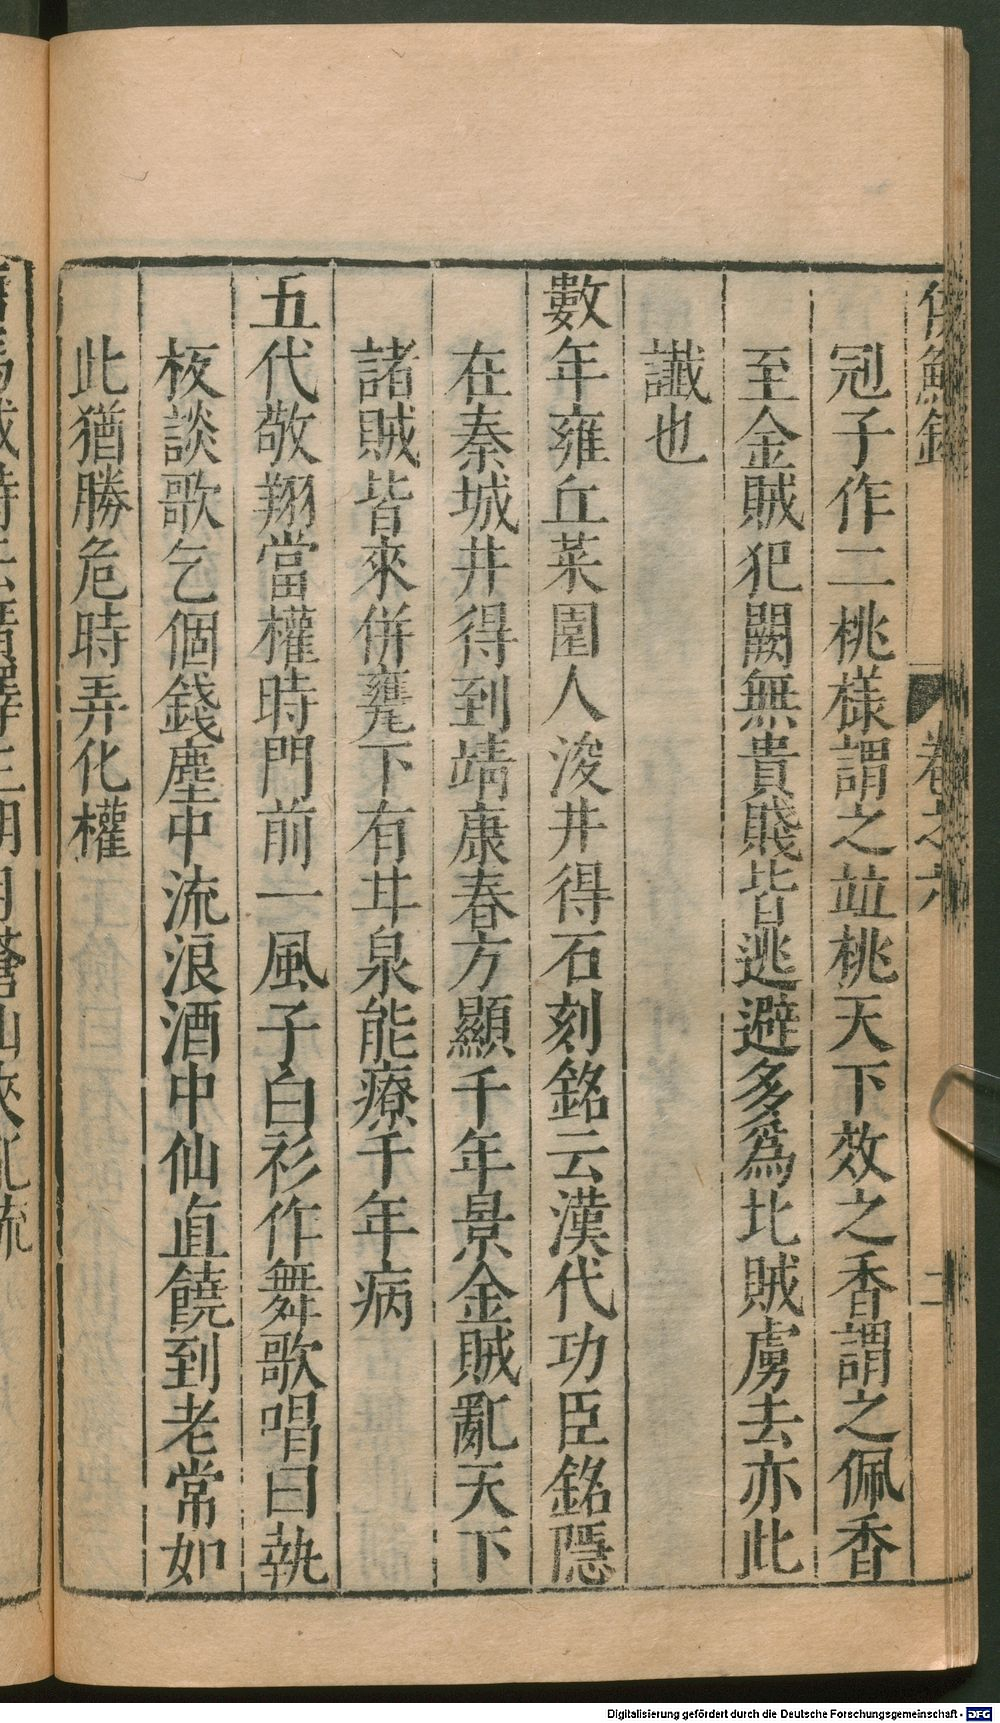 侯鯖錄 卷之六 二
冠子作二桃様謂之竝桃天下效之香謂之佩香
至金賊犯闕無貴賤皆逃避多為北賊虜去亦此
讖也
數年雍丘菜園人浚井得石刻銘云漢代功臣銘隱
在秦城井得到靖康春方顯千年景金賊亂天下
諸賊皆來併甕下有甘泉能療千年病
五代敬翔當權時門前一風子白衫作舞歌唱曰執
板談歌乞個錢塵中流浪酒中仙直饒到老常如
此猶勝危時弄化權
Digitalisierung gefördert durch die Deutsche Forschungsgemeinschaft - DFG